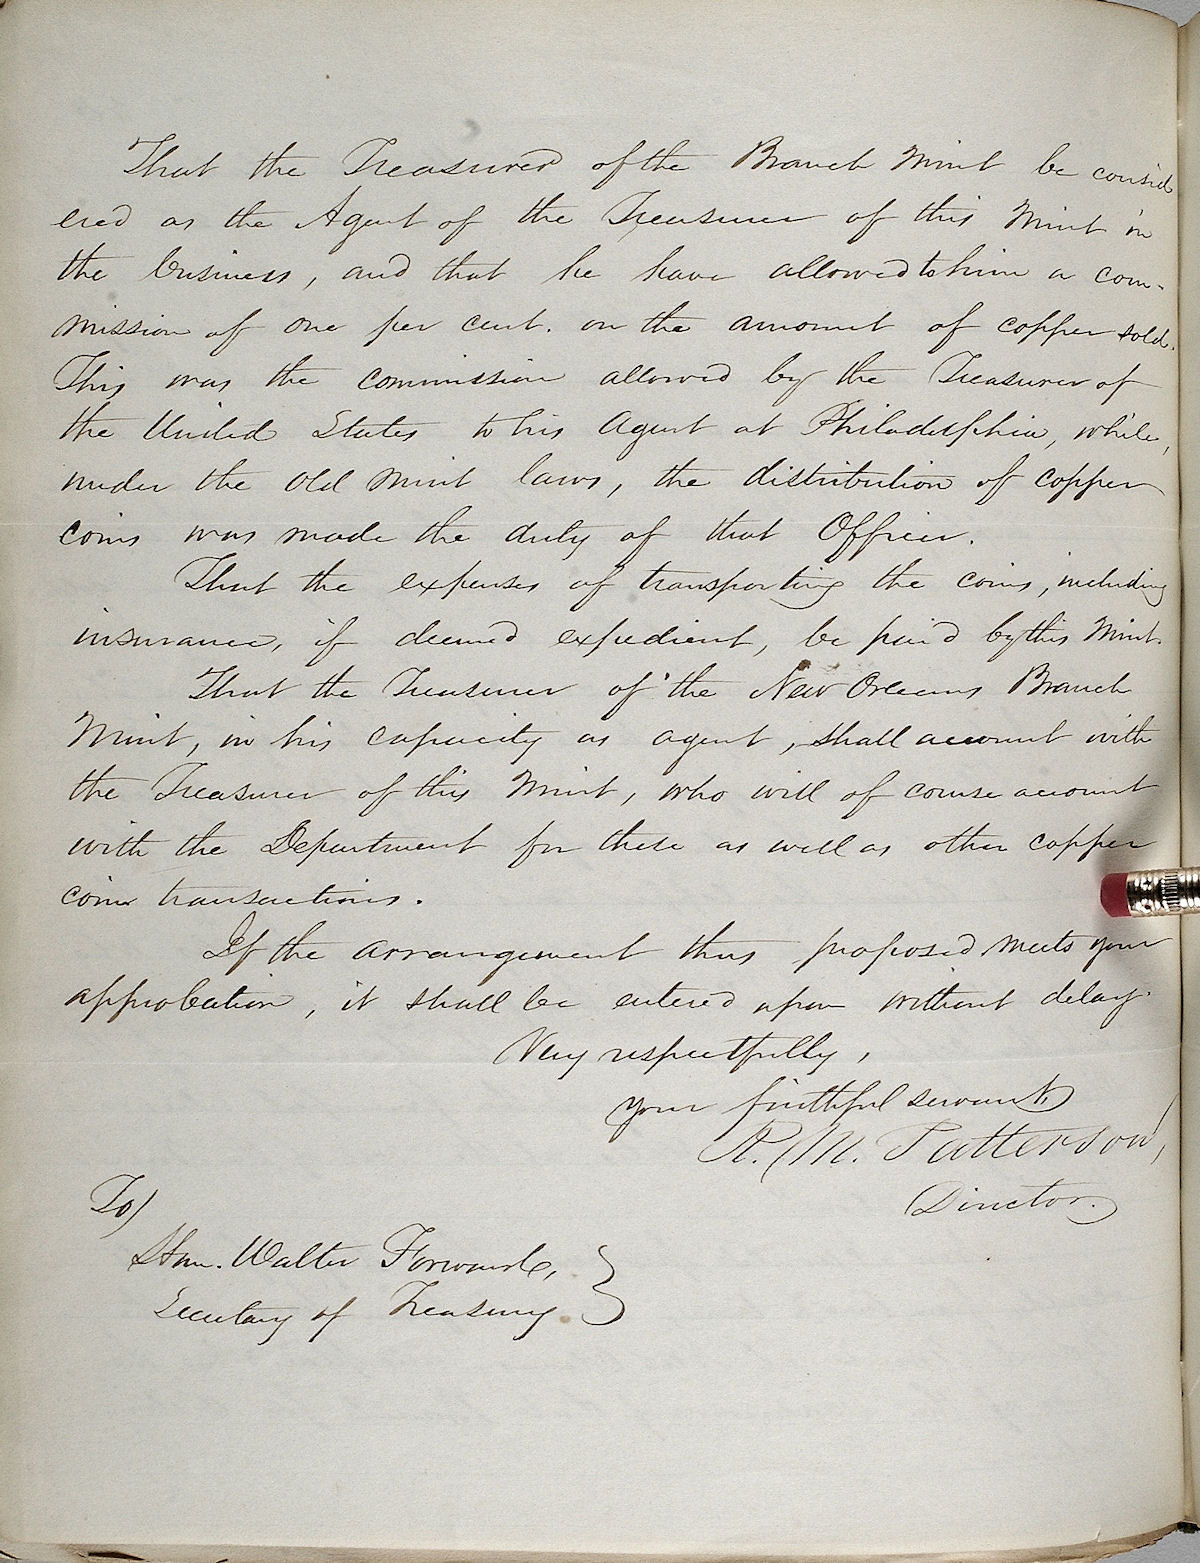 That the Treasurer of the Branch Mint be consid
ered as the Agent of the Treasurer of this Mint in
the business, and that he have allowed to him a com-
mission of one per cent. on the amount of copper sold.
This was the commission allowed by the Treasurer of
the United States to his Agent at Philadelphia, while,
under the old Mint laws, the distribution of copper
coins was made the duty of that Officer.
That the expenses of transporting the coins, including
insurance, if deemed expedient, be paid by this Mint.
That the Treasurer of the New Orleans Branch
Mint, in his capacity as agent, shall account with
the Treasurer of this Mint, who will of course account
with the Department for these as well as other copper
coin transactions.
If the arrangement thus proposed meets your
approbation, it shall be entered upon without delay.
Very respectfully,
your faithful servant,
R. M. Patterson,
Director.
To)
Hon. Walter Forward,
Secretary of Treasury.